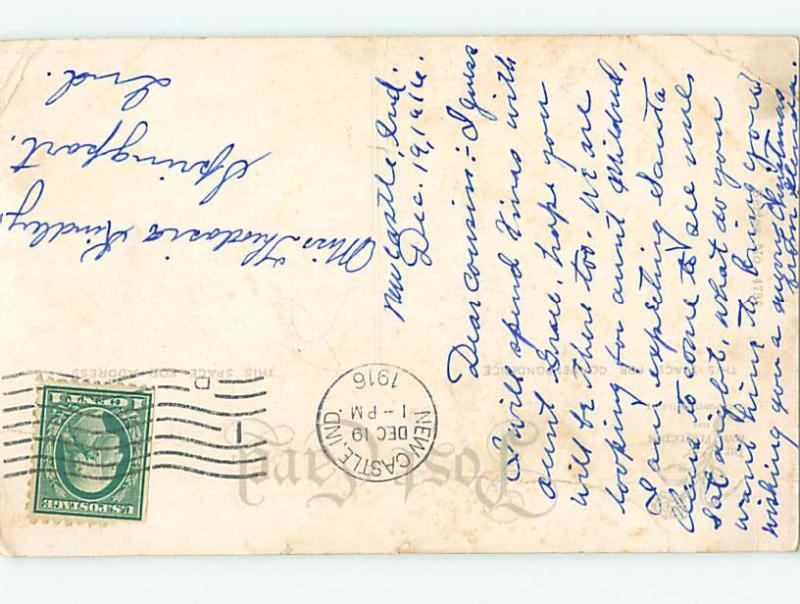 Post Card
THIS SPACE FOR CORRESPONDENCE
THIS SPACE FOR ADDRESS
NEW CASTLE, IND.
DEC 19
1-PM
1916
U.S. POSTAGE
1 CENT 1
New Castle, Ind.
Dec. 19, 1916.
Dear cousin:- I guess
I will spend Xmas with
aunt Grace, hope you
will be there too. We are
looking for aunt Mildred.
I am expecting Santa
Claus to come to see me
Sat. night, what do you
want him to bring you?
wishing you a merry Christmas
from
Miss Theodasia
Springport.
Ind.